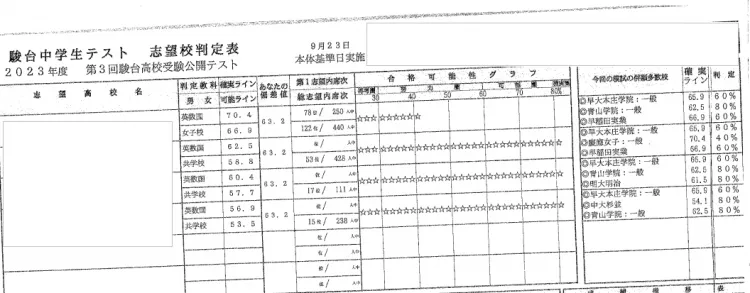 駿台中学生テスト 志望校判定表
9月23日
2023年度 第3回駿台高校受験公開テスト
本体基準日実施
志望高校名
判定教科 確実ライン あなたの偏差値 第1志望内席次 合格可能性グラフ
男女 可能ライン 総志望内席次
30 40 50 60 70 80%
英数国 70.4 63.2 78位/ 250人中 ☆☆☆☆☆☆☆
女子校 66.9 122位/ 440人中
英数国 62.5 63.2 位/ 人中
共学校 58.8 53位/ 428人中
英数国 60.4 63.2 位/ 人中
共学校 57.7 17位/ 111人中
英数国 56.9 63.2 位/ 人中
共学校 53.5 15位/ 238人中
位/ 人中
位/ 人中
位/ 人中
位/ 人中
今回の模試の併願多数校 確実ライン 判定
◎早大本庄学院:一般 65.9 60%
◎青山学院:一般 62.5 80%
◎早稲田実業 66.9 60%
◎早大本庄学院:一般 65.9 60%
◎慶應女子:一般 70.4 40%
◎早稲田実業 66.9 60%
◎早大本庄学院:一般 65.9 60%
◎青山学院:一般 62.5 80%
◎明大明治 61.5 80%
◎早大本庄学院:一般 65.9 60%
◎中大杉並 80%
◎青山学院:一般 62.5 80%